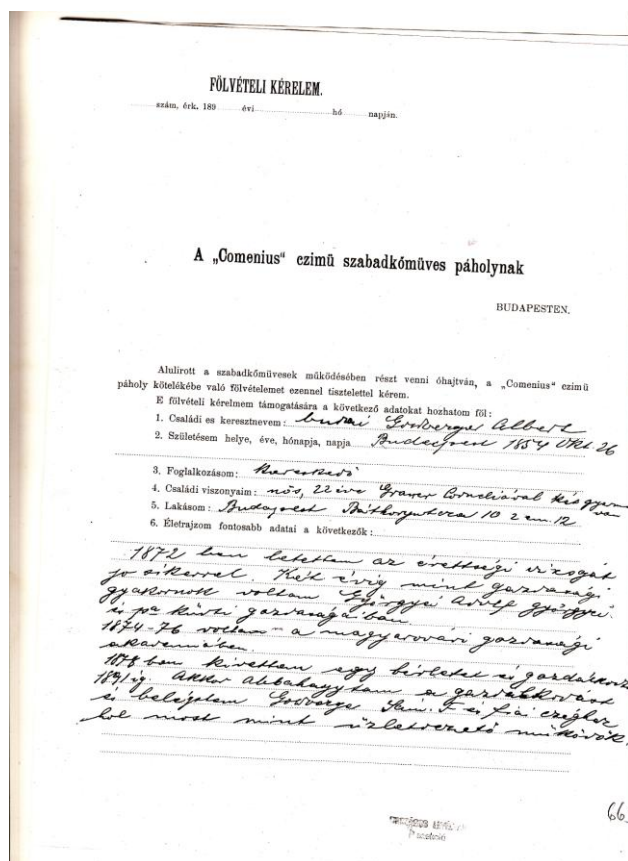 FÖLVÉTELI KÉRELEM.
szám, érk. 189 évi hó napján.
A „Comenius“ czimü szabadkőmüves páholynak
BUDAPESTEN.
Alulirott a szabadkőmüvesek működésében részt venni óhajtván, a „Comenius“ czimü
páholy kötelékébe való fölvételemet ezennel tisztelettel kérem.
E fölvételi kérelmem támogatására a következő adatokat hozhatom föl:
1. Családi es keresztnevem: budai Goldberger Albert
2. Születésem helye, éve, hónapja, napja Budapest 1854 Okt. 26
3. Foglalkozásom: Kereskedő
4. Családi viszonyaim: nős, 22 éve Corneliával két gyerm. van
5. Lakásom: Budapest 10 2 em. 12
6. Életrajzom fontosabb adatai a következők:
1872 ben letettem az érettségi vizsgát
jo sikerrel. Két évig mint gazdasági
gyakornok voltam Adolf
és gazdaságaiban.
1874-76 voltam a magyarovári gazdasági
akademiában.
1878 ban kivettem egy bérletet és
1891 ig. Akkor abbahagytam a gazdálkodást
és beléptem Sám. F. és fiai czéghez
hol most mint üzletvezető müködök.
66.